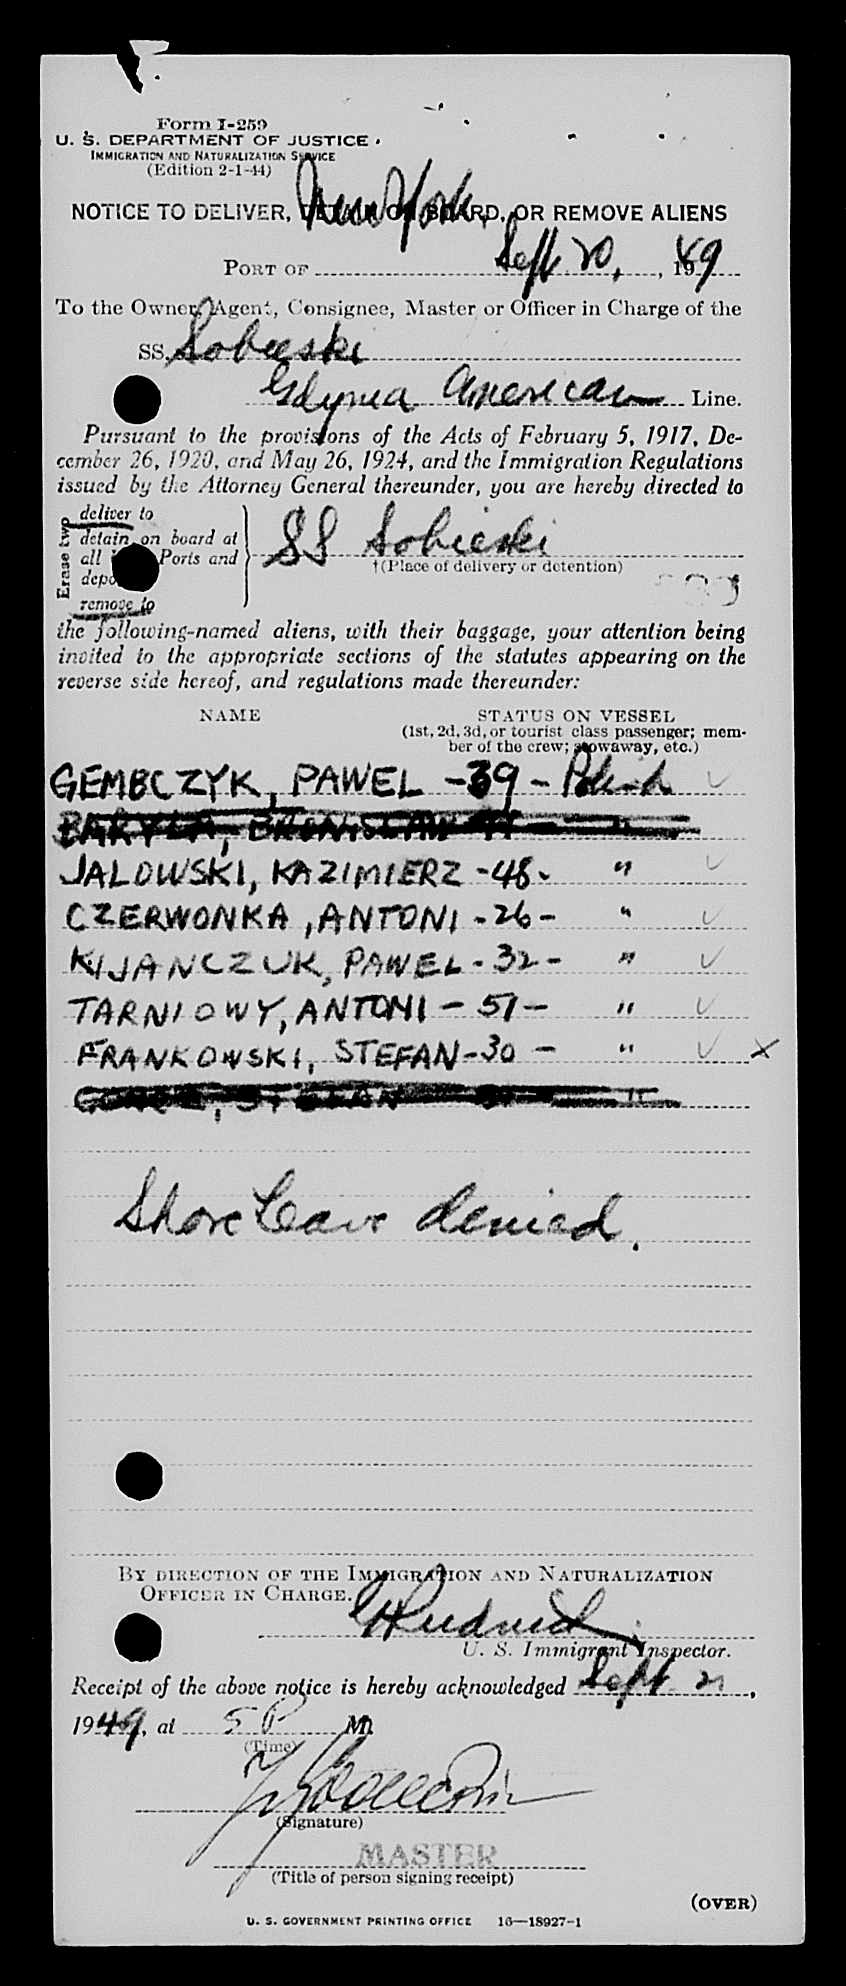 Form I-259
U. S. DEPARTMENT OF JUSTICE
IMMIGRATION AND NATURALIZATION SERVICE
(Edition 2-1-44)
NOTICE TO DELIVER, DETAIN ON BOARD, OR REMOVE ALIENS
New York,
PORT OF Sept. 20, 1949
To the Owner, Agent, Consignee, Master or Officer in Charge of the
SS. Sobieski
Gdynia American Line.
Pursuant to the provisions of the Acts of February 5, 1917, De-
cember 26, 1920, and May 26, 1924, and the Immigration Regulations
issued by the Attorney General thereunder, you are hereby directed to
Erase two
deliver to
detain on board at
all Ports and
remove to
SS Sobieski
†(Place of delivery or detention)
the following-named aliens, with their baggage, your attention being
invited to the appropriate sections of the statutes appearing on the
reverse side hereof, and regulations made thereunder:
NAME STATUS ON VESSEL
(1st, 2d, 3d, or tourist class passenger; mem-
ber of the crew; stowaway, etc.)
GEMBCZYK, PAWEL - 39 - Polish
BARYLA, BRONISLAW "
JALOWSKI, KAZIMIERZ - 48 - "
CZERWONKA, ANTONI - 26 - "
KIJANCZUK, PAWEL - 32 - "
TARNIOWY, ANTONI - 51 - "
FRANKOWSKI, STEFAN - 30 - " X
Shore leave denied.
BY DIRECTION OF THE IMMIGRATION AND NATURALIZATION
OFFICER IN CHARGE.
U. S. Immigrant Inspector.
Receipt of the above notice is hereby acknowledged Sept. 21,
1949, at 5 P M
(Time)
(Signature)
MASTER
(Title of person signing receipt)
(OVER)
U. S. GOVERNMENT PRINTING OFFICE 16—18927-1